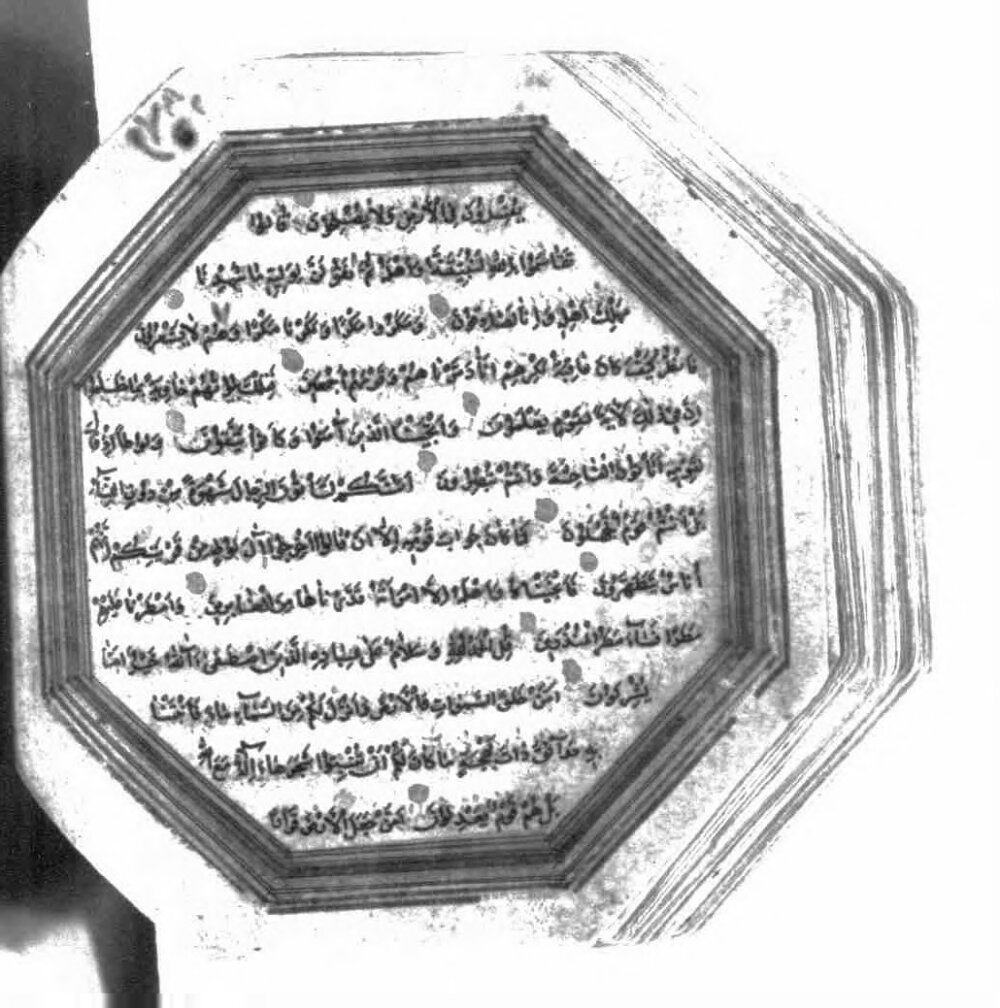 يفسدون في الأرض ولا يصلحون قالوا
تقاسموا بالله لنبيتنه وأهله ثم لنقولن لوليه ما شهدنا
مهلك أهله وإنا لصادقون ومكروا مكرا ومكرنا مكرا وهم لا يشعرون
فانظر كيف كان عاقبة مكرهم أنا دمرناهم وقومهم أجمعين فتلك بيوتهم خاوية بما ظلموا
إن في ذلك لآية لقوم يعلمون وأنجينا الذين آمنوا وكانوا يتقون ولوطا إذ قال
لقومه أتأتون الفاحشة وأنتم تبصرون أئنكم لتأتون الرجال شهوة من دون النساء
بل أنتم قوم تجهلون فما كان جواب قومه إلا أن قالوا أخرجوا آل لوط من قريتكم إنهم
أناس يتطهرون فأنجيناه وأهله إلا امرأته قدرناها من الغابرين وأمطرنا عليهم
مطرا فساء مطر المنذرين قل الحمد لله وسلام على عباده الذين اصطفى آلله خير أما
يشركون أمن خلق السموات والأرض وأنزل لكم من السماء ماء فأنبتنا
به حدائق ذات بهجة ما كان لكم أن تنبتوا شجرها أإله مع الله
بل هم قوم يعدلون أمن جعل الأرض قرارا